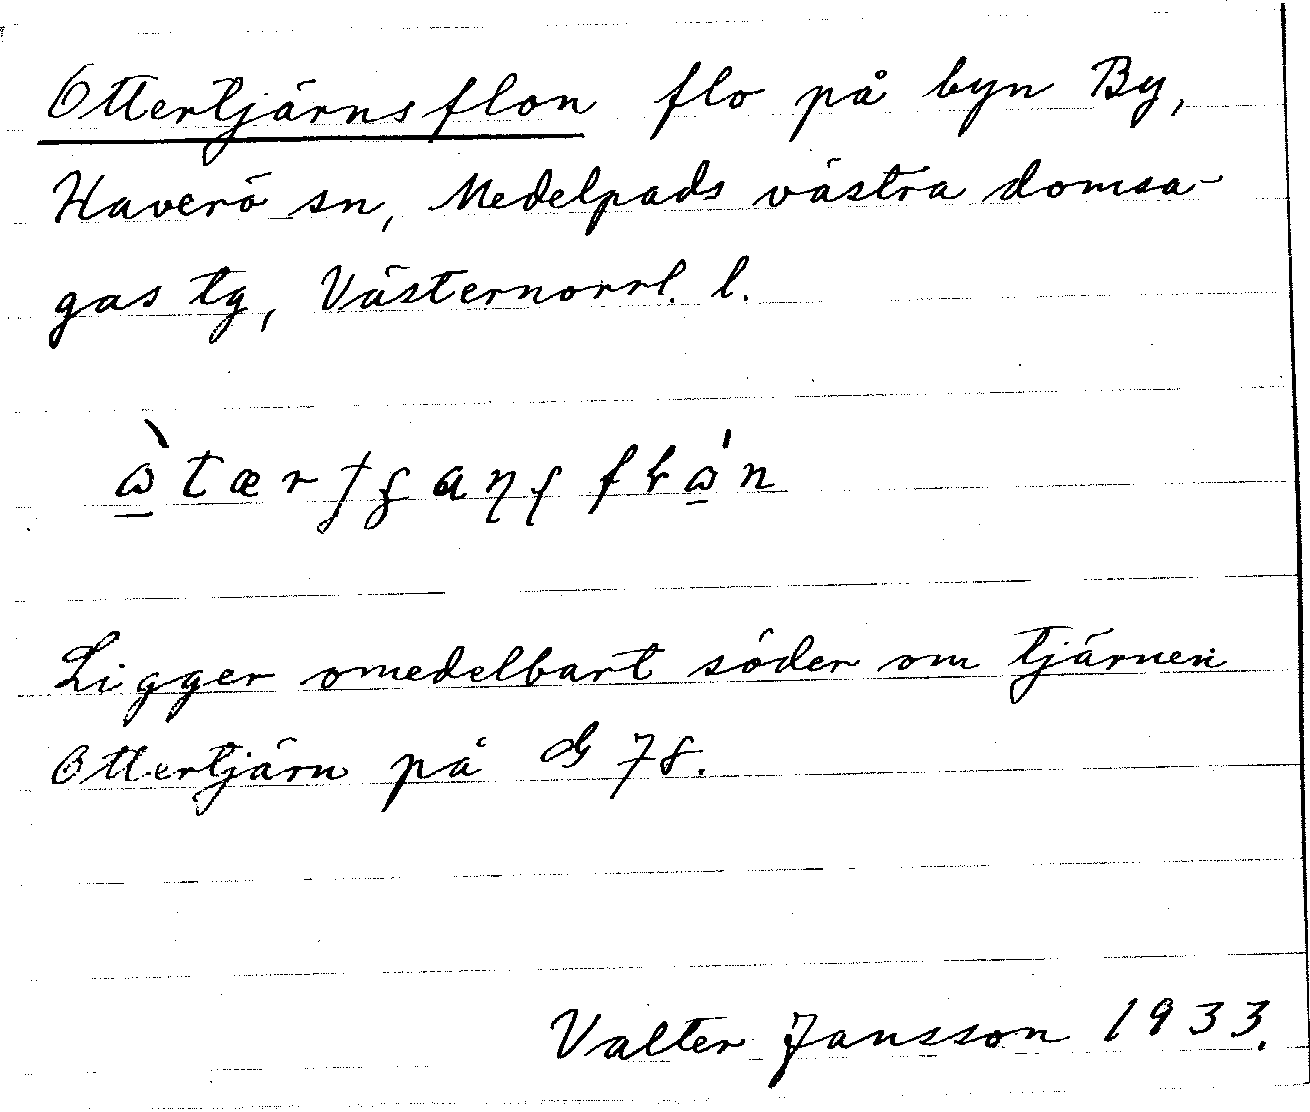 Ottertjärnsflon flo på byn By,
Haverö sn, Medelpads västra domsa-
gas tg, Västernorrl. l.
Ligger omedelbart söder om tjärnen
Ottertjärn på dG 78.
Valter Jansson 1933.